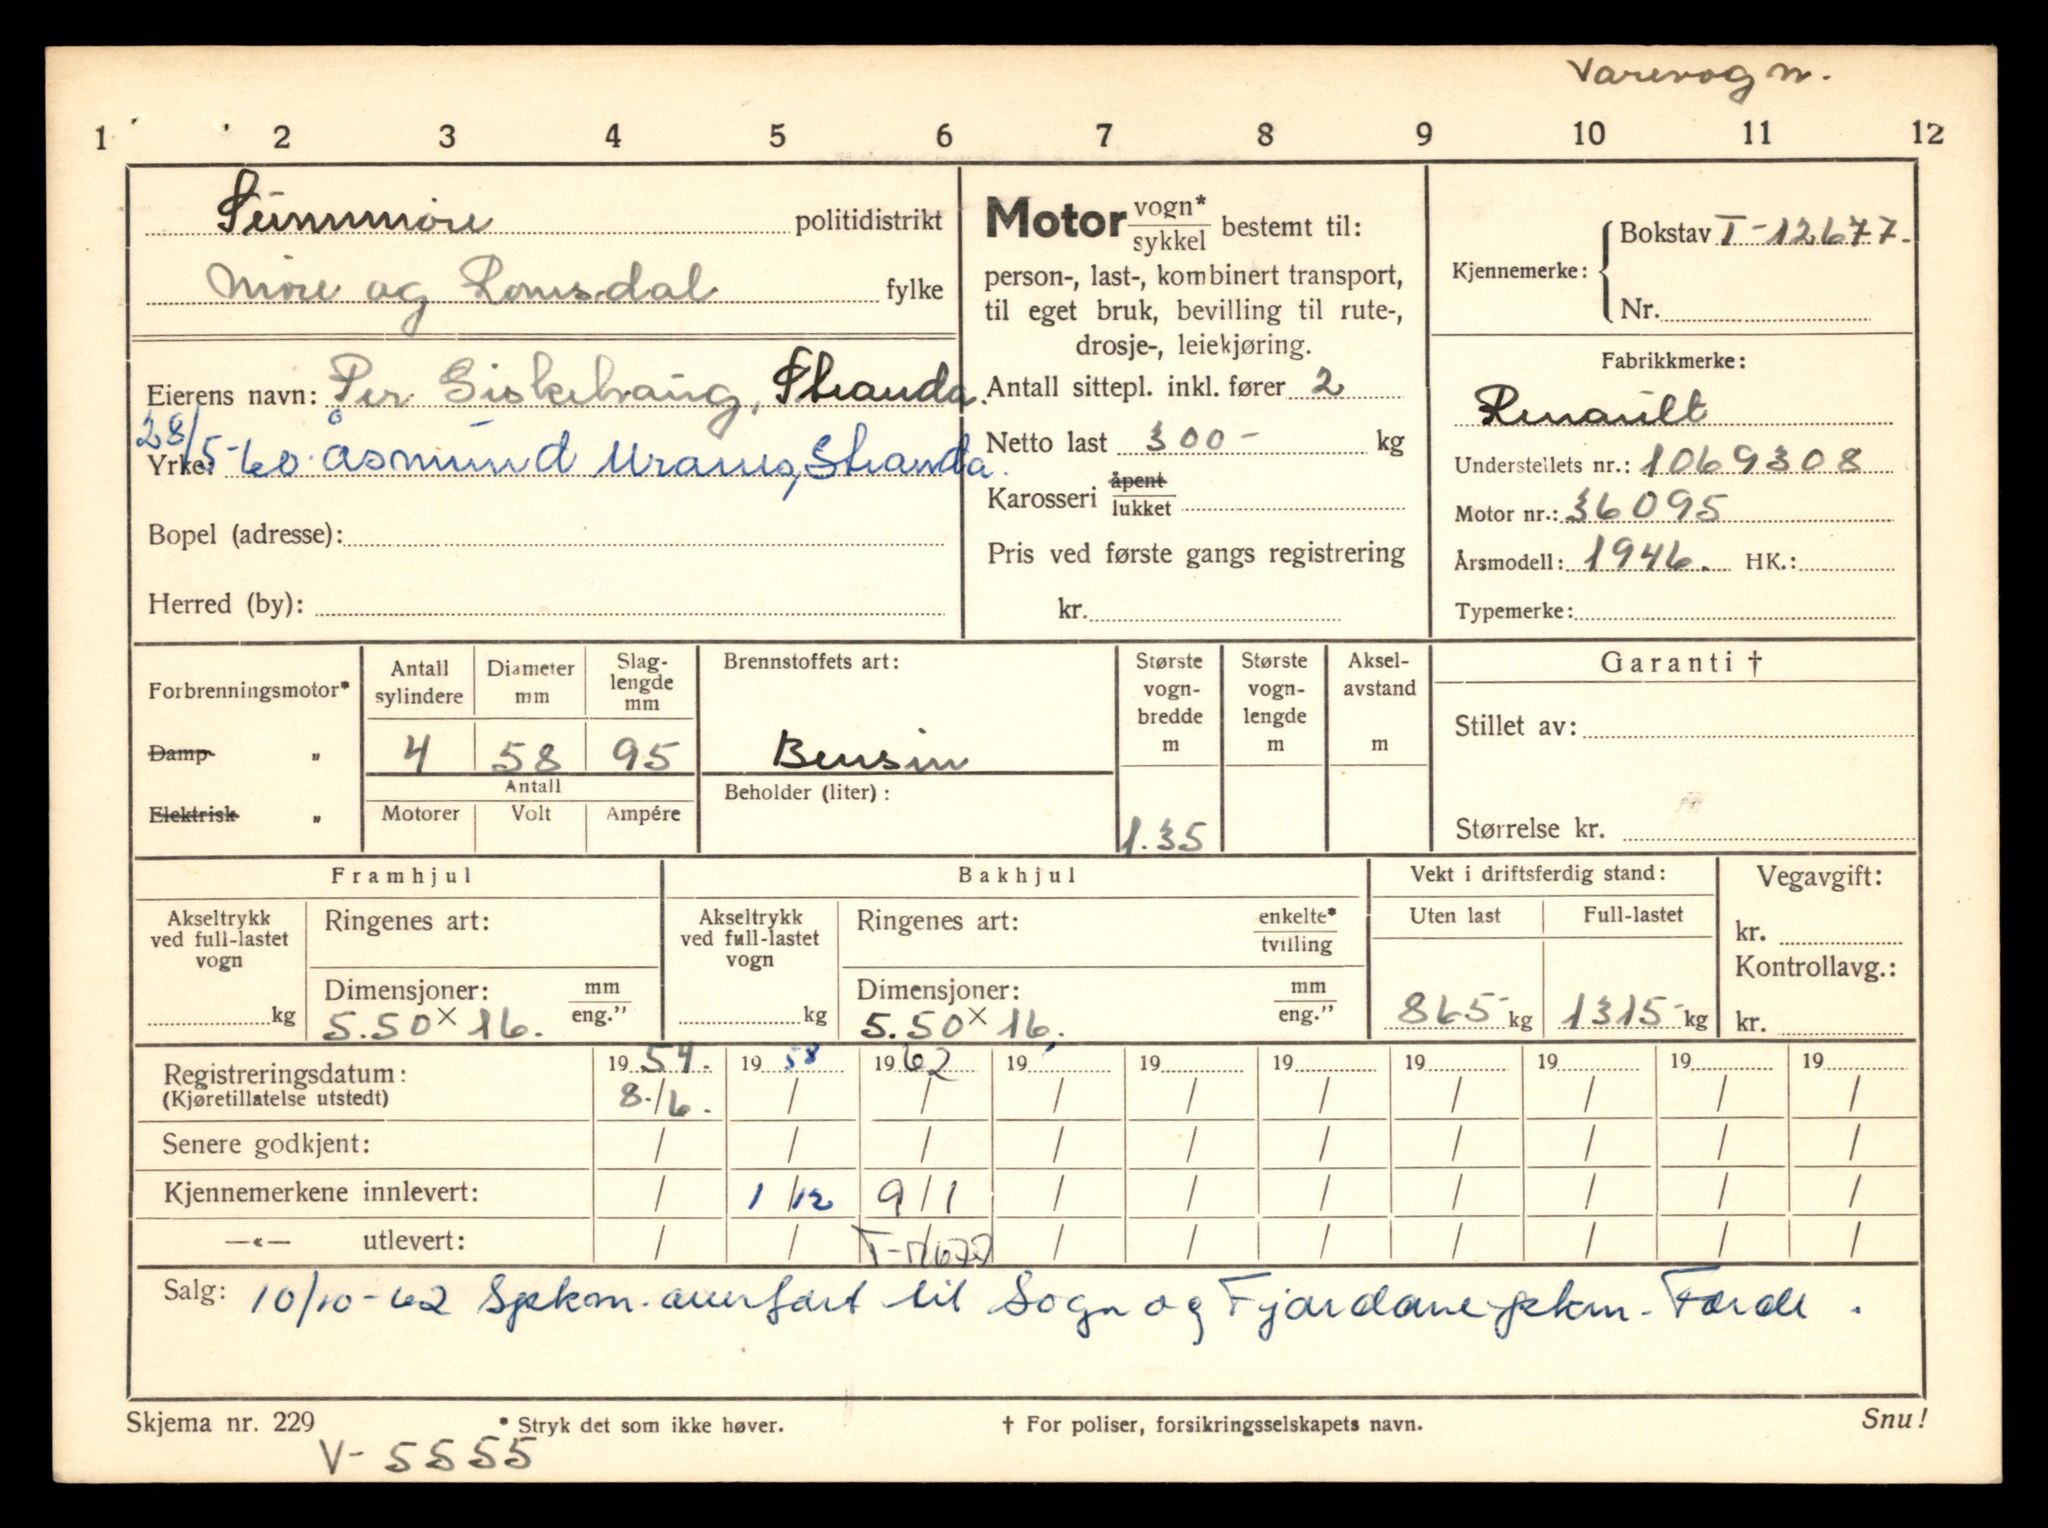 Varevogn.
1 2 3 4 5 6 7 8 9 10 11 12
Sunnmöre politidistrikt
Möre og Romsdal fylke
Eierens navn: Per Giskehaug, Stranda.
28/5-60. Åsmund Uranes, Stranda.
Yrke:
Bopel (adresse):
Herred (by):
Motor vogn* / sykkel bestemt til:
person-, last-, kombinert transport,
til eget bruk, bevilling til rute-,
drosje-, leiekjøring.
Antall sittepl. inkl. fører 2
Netto last 300- kg
Karosseri åpent / lukket
Pris ved første gangs registrering
kr.
Kjennemerke: Bokstav T-12677.
Nr.
Fabrikkmerke:
Renault
Understellets nr.: 1069308
Motor nr.: 36095
Årsmodell: 1946. HK.:
Typemerke:
Forbrenningsmotor*
Damp „
Elektrisk „
Antall sylindere 4
Diameter mm 58
Slag-lengde mm 95
Antall
Motorer Volt Ampére
Brennstoffets art:
Bensin
Beholder (liter):
Største vogn-bredde m 1.35
Største vogn-lengde m
Aksel-avstand m
Garanti †
Stillet av:
Størrelse kr.
Framhjul
Akseltrykk ved full-lastet vogn
kg
Ringenes art:
Dimensjoner: mm / eng.”
5.50 x 16.
Bakhjul
Akseltrykk ved full-lastet vogn
kg
Ringenes art: enkelte* / tvilling
Dimensjoner: mm / eng.”
5.50 x 16.
Vekt i driftsferdig stand:
Uten last Full-lastet
865- kg 1315- kg
Vegavgift:
kr.
Kontrollavg.:
kr.
Registreringsdatum: 19 54. 19 58 19 62 19 19 19 19 19 19 19
(Kjøretillatelse utstedt) 8./6. / / / / / / / / /
Senere godkjent: / / / / / / / / / /
Kjennemerkene innlevert: / 1/12 9/1 / / / / / / /
—«— utlevert: / / / / / / / / /
Salg: 10/10-62 Spkm. overført til Sogn og Fjordane pkm. Førde.
Skjema nr. 229
* Stryk det som ikke høver.
† For poliser, forsikringsselskapets navn.
Snu!
V-5555